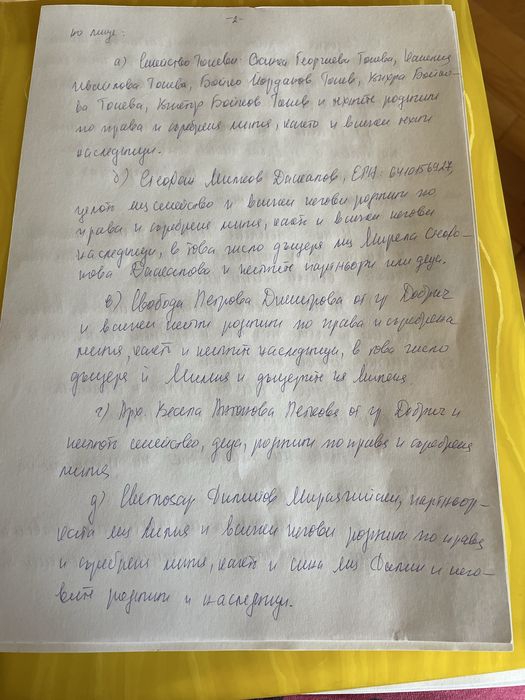 -2-
но лице:
а) Семейство Тошеви: Ванча Георгиева Тошева, Камелия
Ивайлова Тошева, Бойчо Йорданов Тошев, Бойчо-
ва Тошева, Бойчов Тошев и техните роднини
по права и съребрена линия, както и всички техни
наследници.
б) Стефан Милков Дамсалов, ЕГН:
цялото му семейство и всички негови роднини по
права и съребрена линия, както и всички негови
наследници, в това число дъщеря му Мирела
и нейните партньори или деца.
в) Свобода Петрова Димитрова от гр. Добрич
и всички нейни роднини по права и съребрена
линия, както и нейните наследници, в това число
дъщеря ѝ Милия и дъщерите на Милена
г) Арх. Весела Антонова Петкова от гр. Добрич и
нейното семейство, деца, роднини по права и съребрена
линия
д) Светлозар Филипов партньор-
ката му Лилия и всички негови роднини по права
и съребрена линия, както и сина му Филип и него-
вите роднини и наследници.